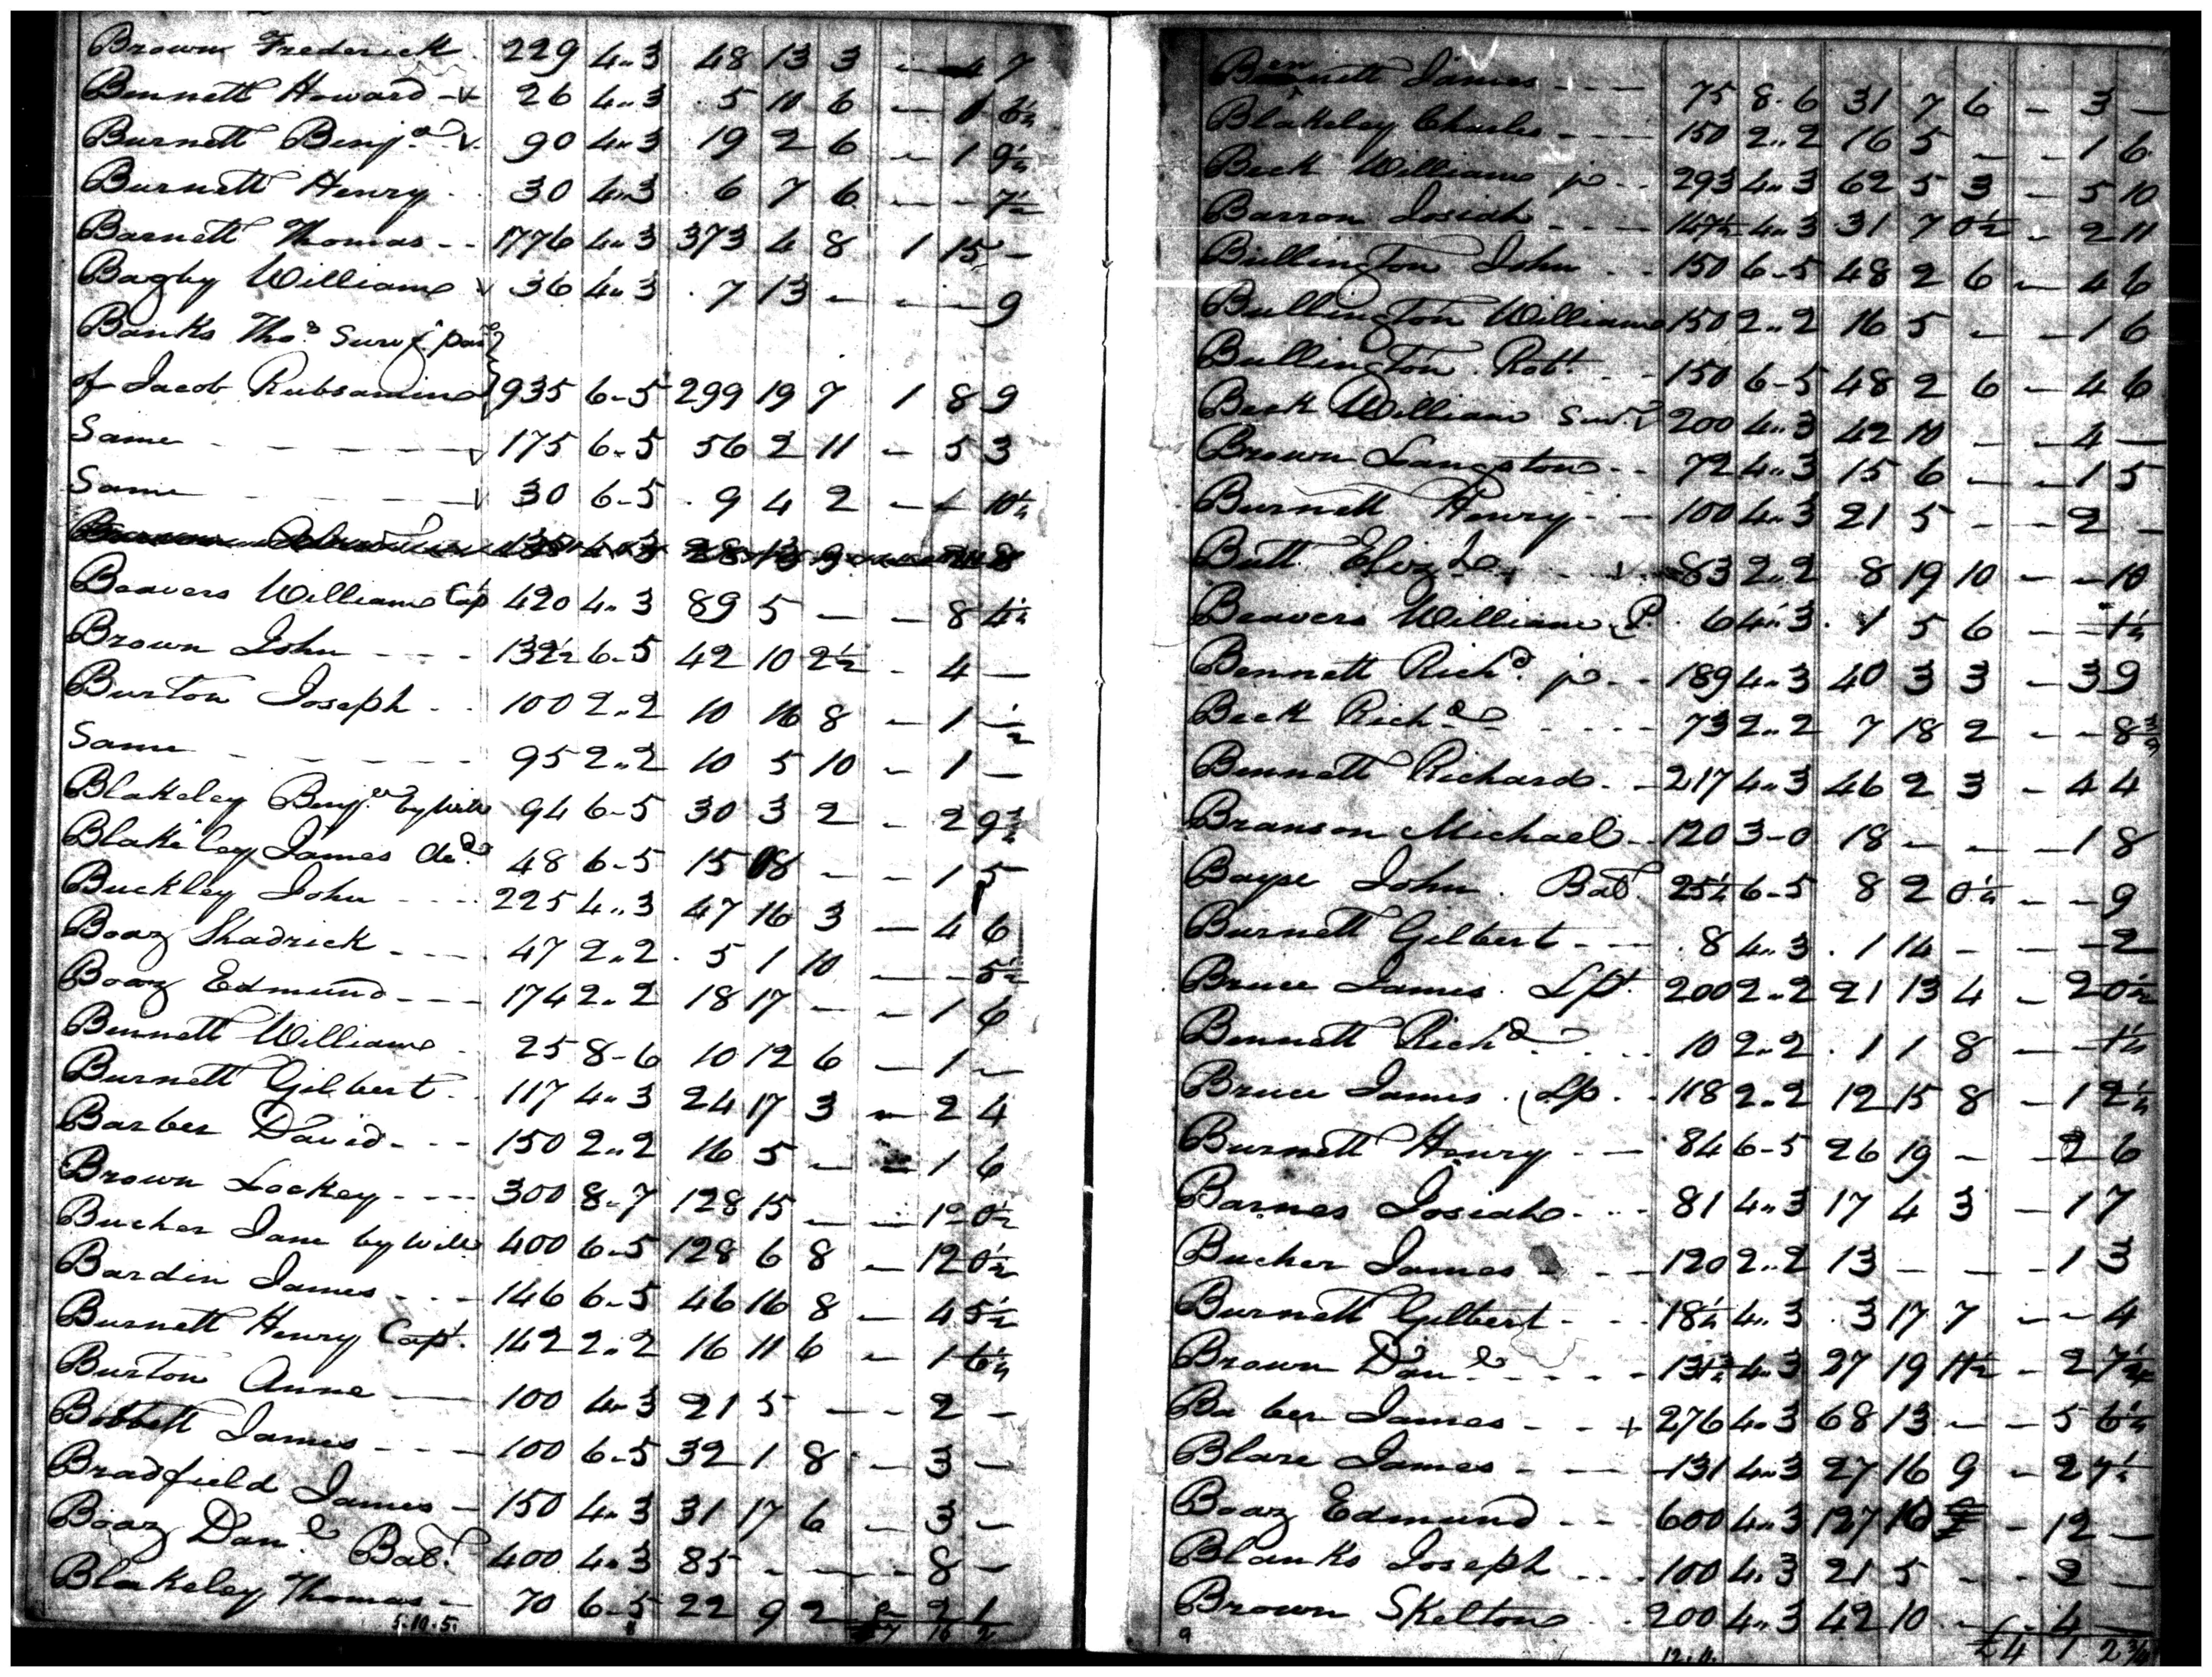 Brown Frederick 229 4..3 48 13 3 - 4 7
Bennett Howard - v 26 4..3 5 10 6 - 6½
Burnett Benja v. 90 4..3 19 2 6 - 1 9½
Burnett Henry 30 4..3 6 7 6 - - 7½
Barnett Thomas - - 1776 4..3 373 4 8 1 15 -
Bagby William v 36 4..3 7 13 - - - 9
Banks Thos Survg part
of Jacob Rubsamine 935 6-5 299 19 7 1 8 9
Same - - - - v 175 6-5 56 2 11 - 5 3
Same - - - - v 30 6-5 9 4 2 - - 10¼
135 4..3 28 13 9
Beavers William Capt 420 4..3 89 5 - - 8 4½
Brown John - - - 132½ 6-5 42 10 2½ - 4 -
Burton Joseph - - 100 2..2 10 16 8 - 1 -½
Same - - - - 95 2..2 10 5 10 - 1 -
Blakeley Benja by Will 94 6-5 30 3 2 - 2 9¾
Blakeley James do 48 6-5 15 08 - - 1 5
Buckley John - - - 225 4..3 47 16 3 - 4 6
Boaz Shadrick - - - 47 2..2 5 1 10 - - 5½
Boaz Edmund - - - 174 2..2 18 17 - - 1 6
Bennett William 25 8-6 10 12 6 - 1 -
Burnett Gilbert - 117 4..3 24 17 3 - 2 4
Barber David - - - 150 2..2 16 5 - - 1 6
Brown Lockey - - - 300 8-7 128 15 - - 12 0½
Bucher Jane by Will 400 6-5 128 6 8 - 12 0½
Bardin James - - - 146 6-5 46 16 8 - 4 5½
Burnett Henry Capt. 142 2..2 16 11 6 - 1 6¼
Burton Anne - 100 4..3 21 5 - - 2 -
Bobbett James - - - 100 6-5 32 1 8 - 3 -
Bradfield James - 150 4..3 31 17 6 - 3 -
Boaz Danl Bat. 400 4..3 85 - - - 8 -
Blakeley Thomas - 70 6-5 22 9 2 2 1
5.10.5.
Bennett James - - - 75 8-6 31 7 6 - 3 -
Blakeley Charles - - - 150 2..2 16 5 - - 1 6
Beck William jr - - 293 4..3 62 5 3 - 5 10
Barron Josiah - - - 147½ 4..3 31 7 0½ - 2 11
Bullington John - - 150 6-5 48 2 6 - 4 6
Bullington William 150 2..2 16 5 - - 1 6
Bullington Robt. - - 150 6-5 48 2 6 - 4 6
Beck William 200 4..3 42 10 - - 4 -
Brown Langston - - 72 4..3 15 6 - - 1 5
Burnett Henry - - 100 4..3 21 5 - - 2 -
Butt v 83 2..2 8 19 10 - - 10
Beavers William P. 6 4..3 1 5 6 - - 1½
Bennett Richd. jr - - 189 4..3 40 3 3 - 3 9
Beck Richd - - - - 73 2..2 7 18 2 - - 8¾
Bennett Richard - - 217 4..3 46 2 3 - 4 4
Branson Michael - - 120 3-0 18 - - - 1 8
Bayse John Bat. 25¼ 6-5 8 2 0¼ - - 9
Burnett Gilbert - - - 8 4..3 1 14 - - - 2
Bruce James Lpt. 200 2..2 21 13 4 - 2 0½
Bennett Richd - - - 10 2..2 1 1 8 - - 1¼
Bruce James Lp. - 118 2..2 12 15 8 - 1 2½
Burnett Henry - - 84 6-5 26 19 - - 2 6
Barnes Josiah - - - 81 4..3 17 4 3 - 1 7
Bucher James - - - 120 2..2 13 - - - 1 3
Burnett Gilbert - - 18¼ 4..3 3 17 7 - - 4
Brown Danl - - - - 131¾ 4..3 27 19 11½ - 2 7½
Ba ber James - - + 276 4..3 68 13 - - 5 6¼
Blare James - - - 131 4..3 27 16 9 - 2 7½
Boaz Edmund - - 600 4..3 127 10 - 12 -
Blanks Joseph - - - 100 4..3 21 5 - - 2 -
Brown Skelton - - 200 4..3 42 10 - - 4 -
9 £4 1 2¾